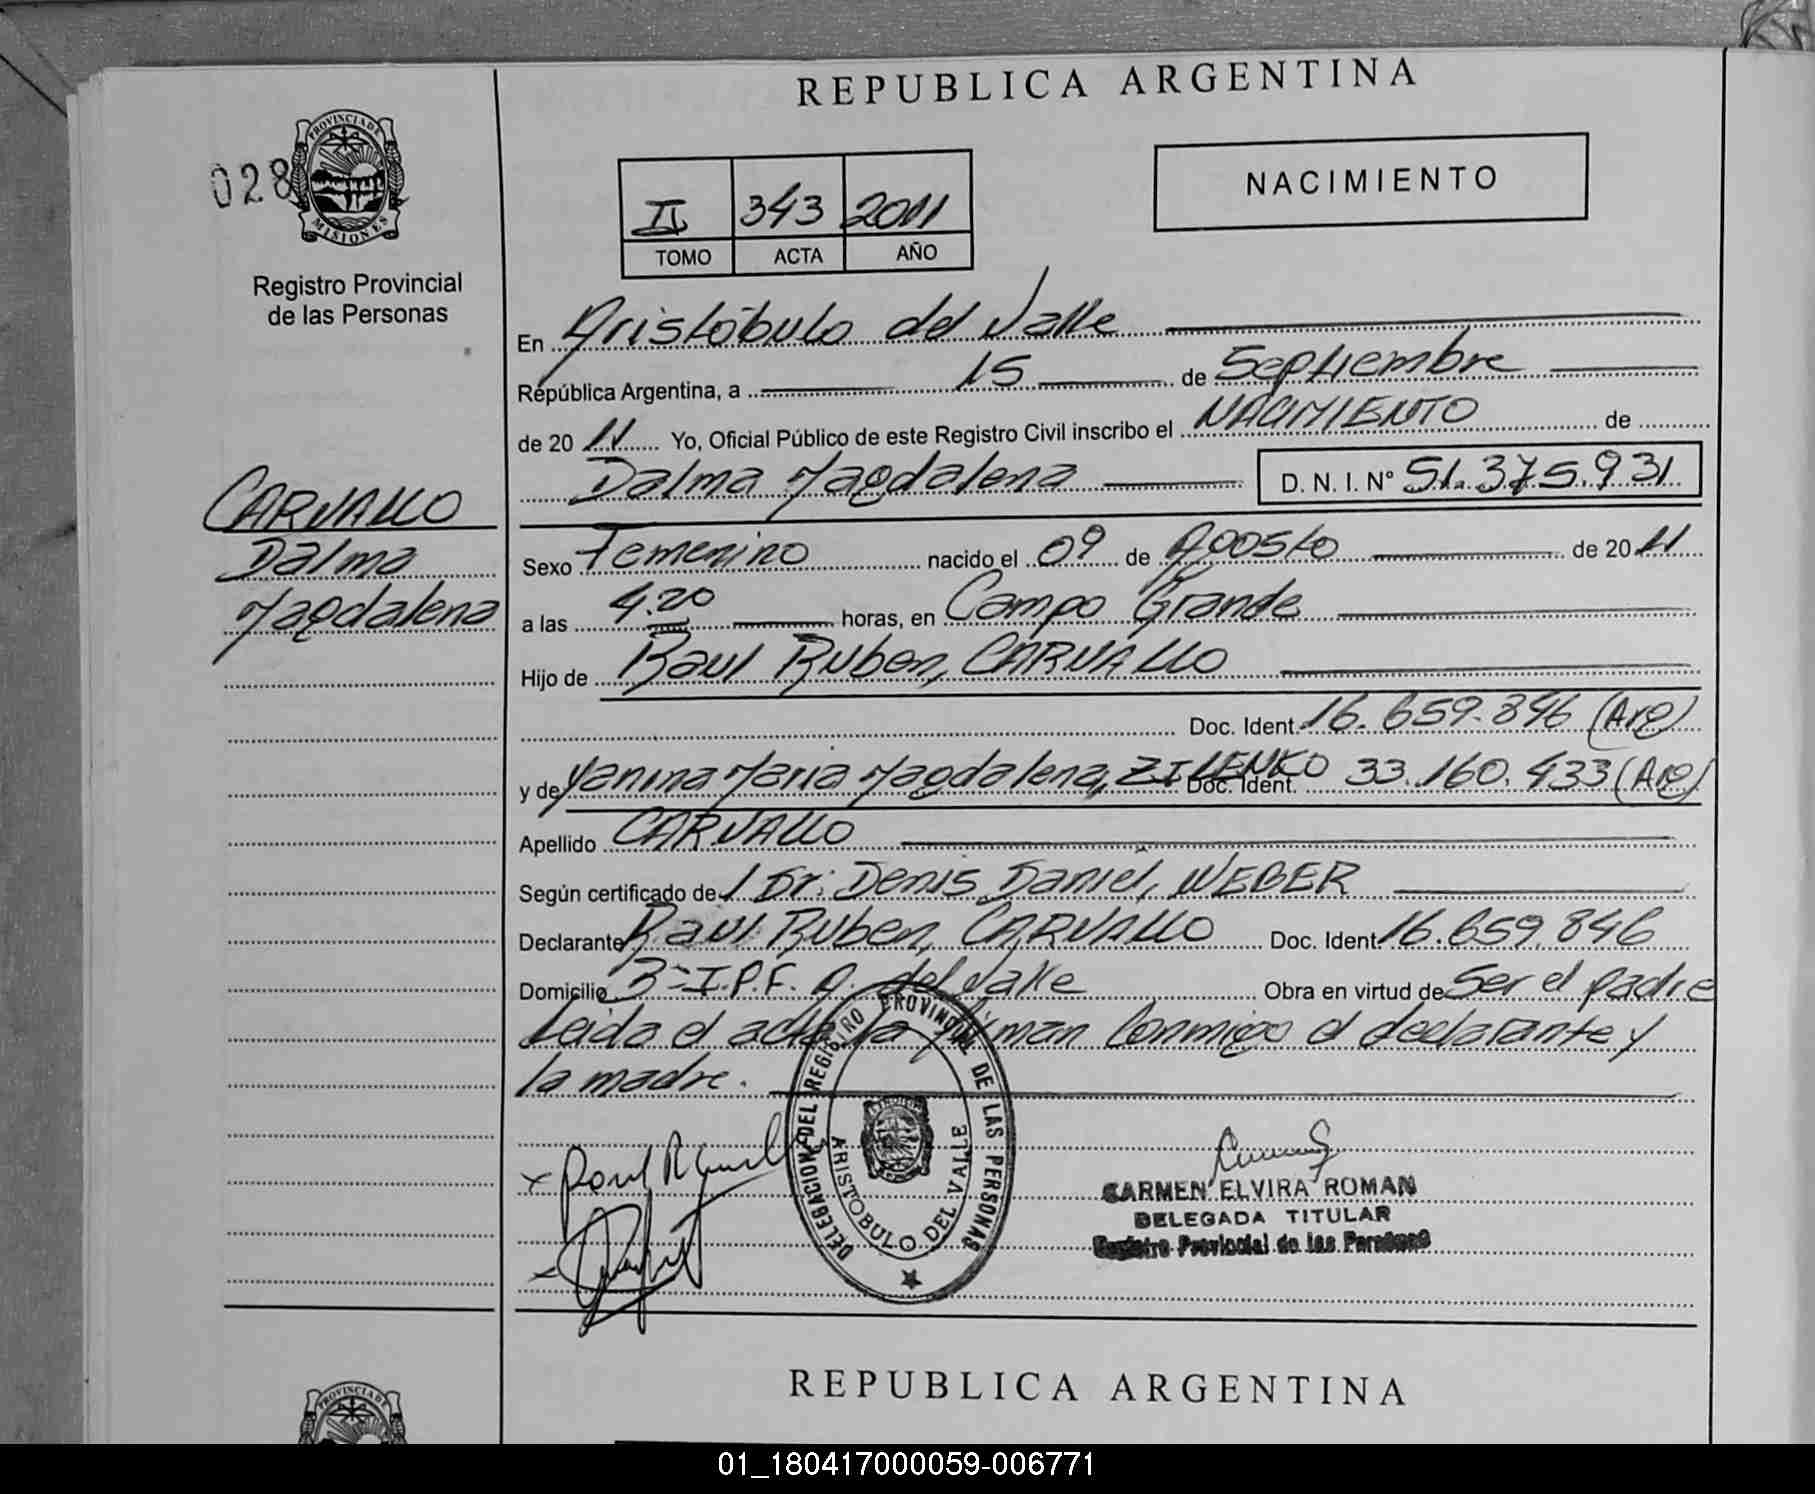 REPUBLICA ARGENTINA
028
PROVINCIA DE
MISIONES
Registro Provincial
de las Personas
NACIMIENTO
II 343 2011
TOMO ACTA AÑO
En Aristóbulo del Valle
República Argentina, a 15 de Septiembre
de 20 11 Yo, Oficial Público de este Registro Civil inscribo el NACIMIENTO de
Dalma Magdalena D. N. I. Nº 51.375.931
CARVALLO
Dalma
Magdalena
Sexo Femenino nacido el 09 de Agosto de 20 11
a las 4.20 horas, en Campo Grande
Hijo de Raul Ruben, CARVALLO
Doc. Ident. 16.659.846 (Arg)
y de Yanina Maria Magdalena, ZILENKO Doc. Ident. 33.160.433 (Arg)
Apellido CARVALLO
Según certificado de l Dr: Denis Daniel, WEBER
Declarante Raul Ruben, CARVALLO Doc. Ident 16.659.846
Domicilio Bº I.P.F. A. del Valle Obra en virtud de Ser el padre
Leida el acta la firman Conmigo el declarante y
la madre.
DELEGACION DEL REGISTRO PROVINCIAL DE LAS PERSONAS
ARISTOBULO DEL VALLE
CARMEN ELVIRA ROMAN
DELEGADA TITULAR
Registro Provincial de las Personas
REPUBLICA ARGENTINA
PROVINCIA DE
01_180417000059-006771